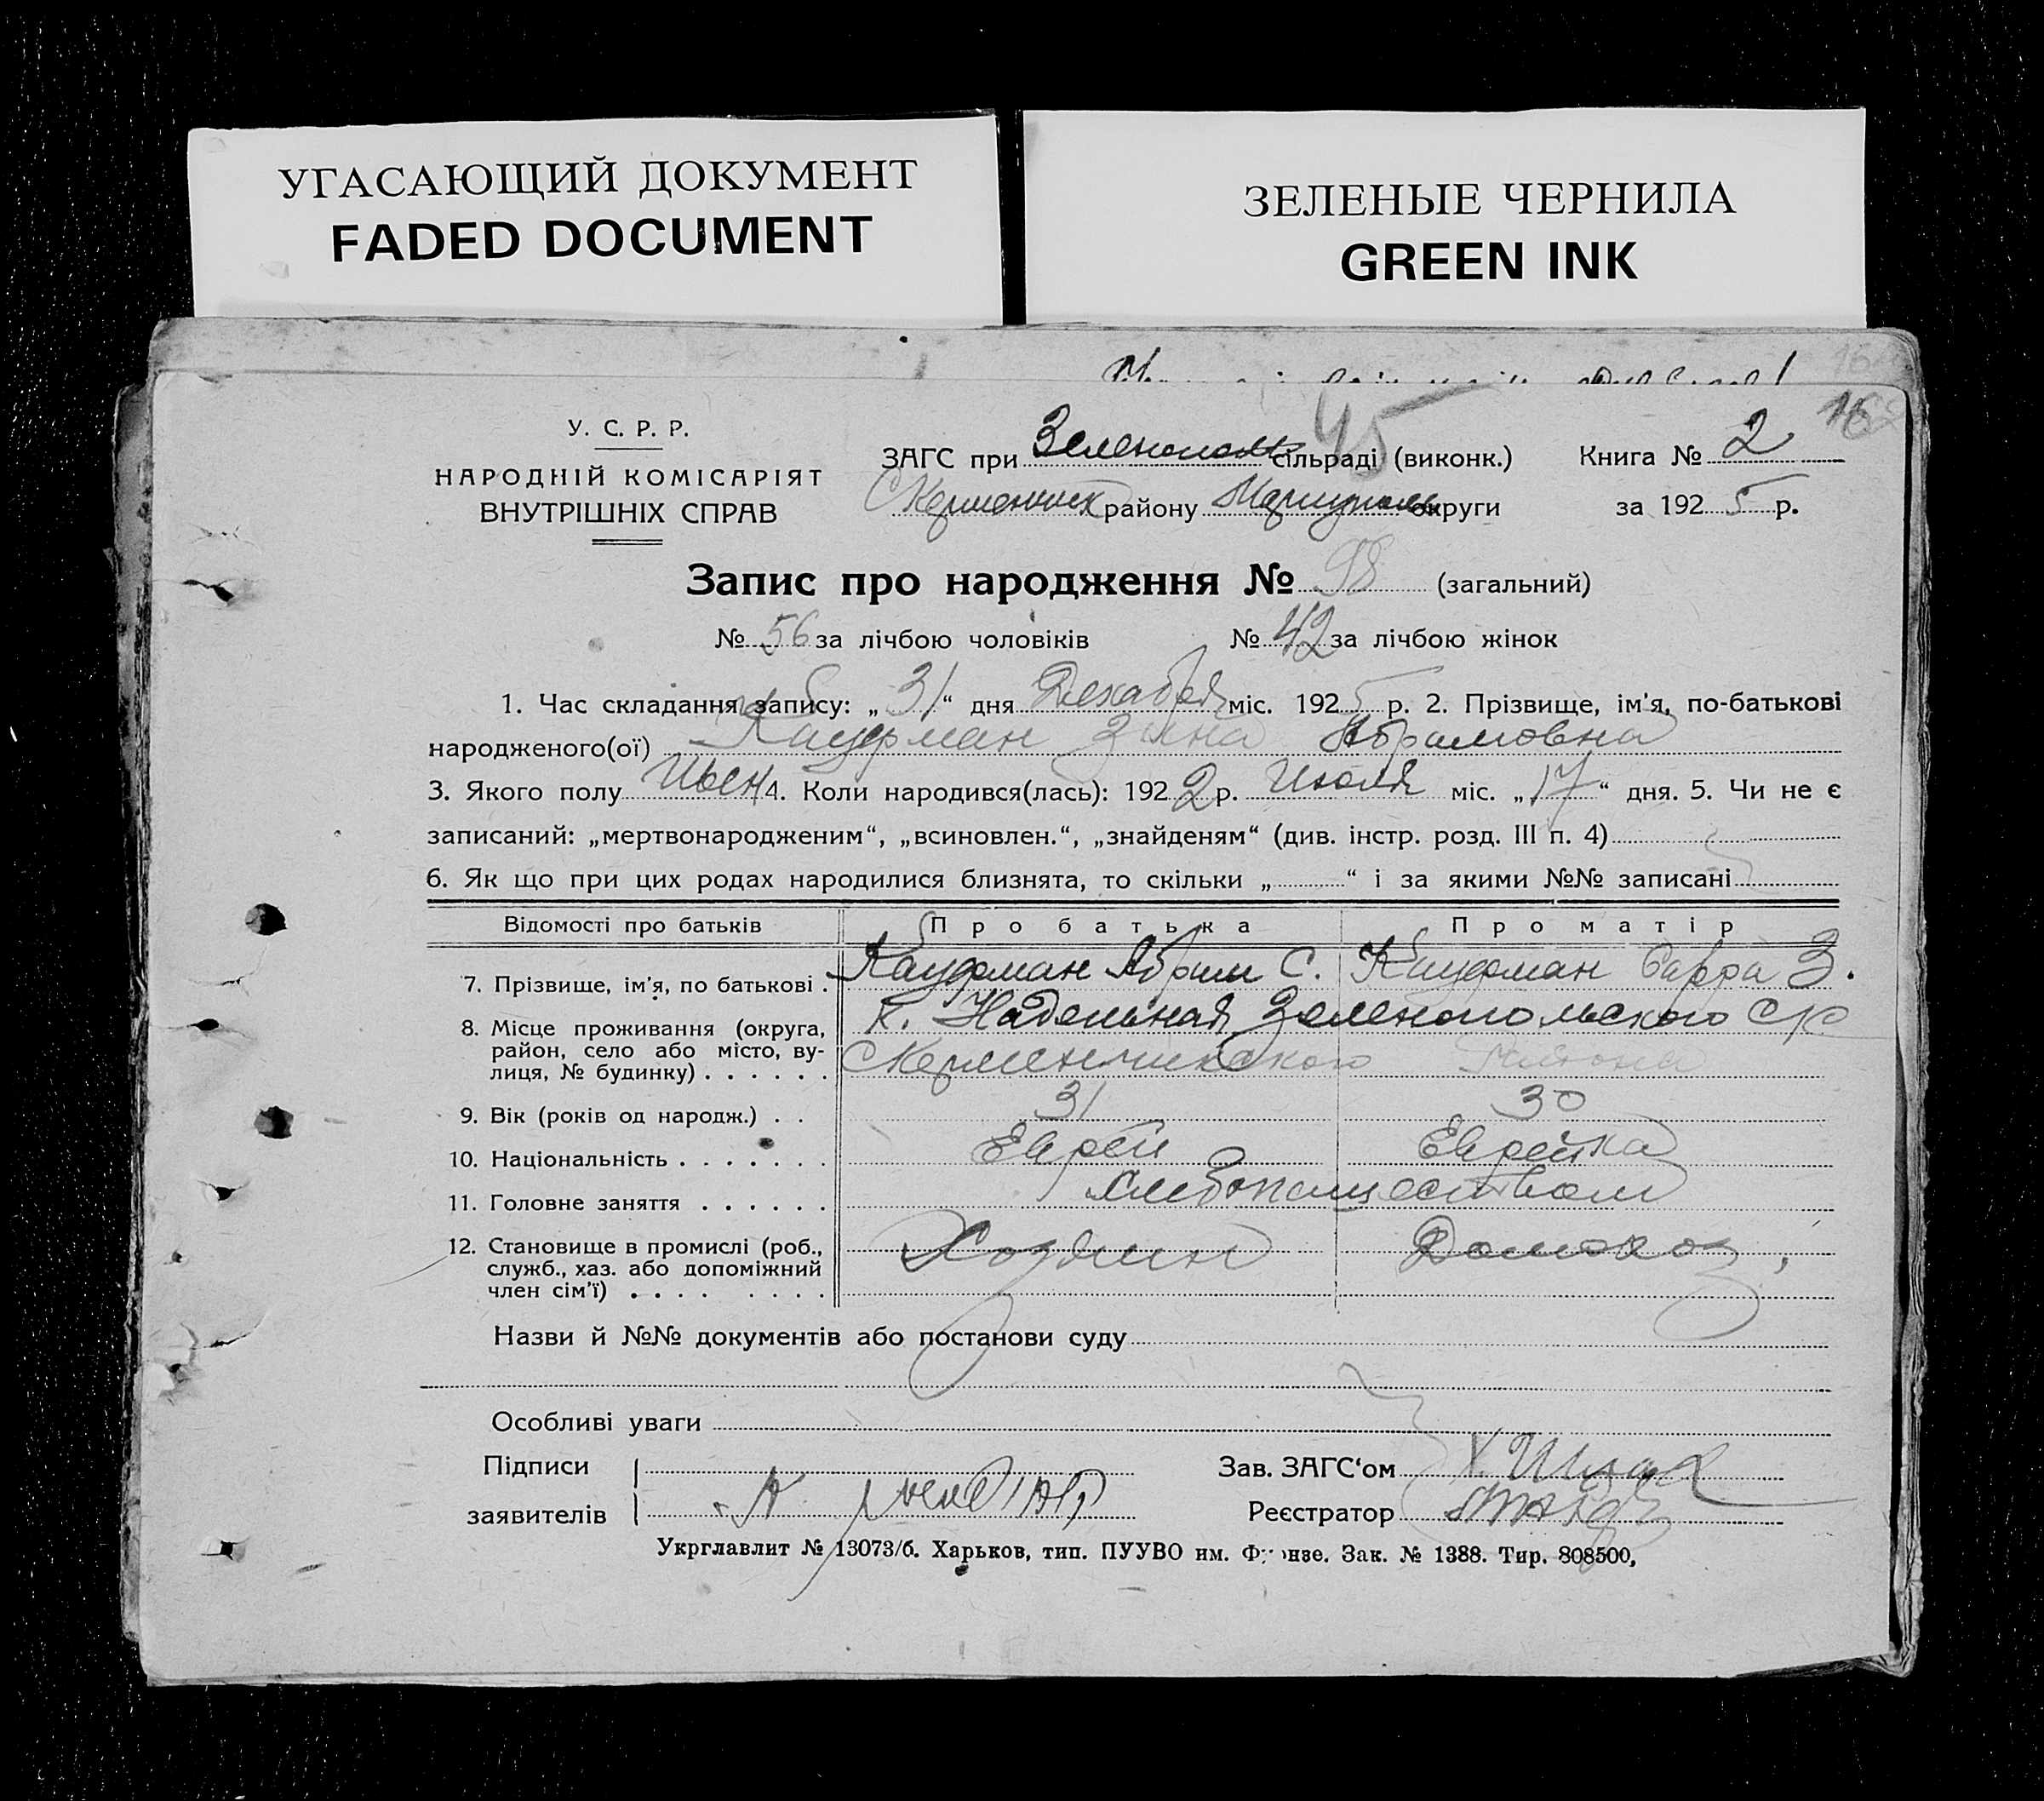 УГАСАЮЩИЙ ДОКУМЕНТ
FADED DOCUMENT
ЗЕЛЕНЫЕ ЧЕРНИЛА
GREEN INK
45
У. С. Р. Р.
НАРОДНІЙ КОМІСАРІЯТ
ВНУТРІШНІХ СПРАВ
ЗАГС при Зеленополь сільраді (виконк.) Книга № 2
С Керменчик району Мариуполь округи за 1925 р.
Запис про народження № 98 (загальний)
№ 56 за лічбою чоловіків № 42 за лічбою жінок
1. Час складання запису: „31“ дня Декабря міс. 1925 р. 2. Прізвище, ім'я, по-батькові
народженого(ої) Кауфман Зина Абрамовна
3. Якого полу Жен 4. Коли народився(лась): 1922 р. Июля міс. „17“ дня. 5. Чи не є
записаний: „мертвонародженим“, „всиновлен.“, „знайденям“ (див. інстр. розд. III п. 4)
6. Як що при цих родах народилися близнята, то скільки „ “ і за якими №№ записані
Відомості про батьків Про батька Про матір
7. Прізвище, ім'я, по батькові . Кауфман Абрам С. Кауфман Сарра З.
8. Місце проживання (округа, к. Надельная Зеленопольского с/с
район, село або місто, ву- С Керменчикского Района
лиця, № будинку) . . . . . .
9. Вік (років од народж.) . . 31 30
10. Національність . . . . . . . Еврей Еврейка
11. Головне заняття . . . . . . Хлебопашеством
12. Становище в промислі (роб., Хозяин Домохоз,
служб., хаз. або допоміжний
член сім'ї) . . . . . . . .
Назви й №№ документів або постанови суду
Особливі уваги
Підписи Зав. ЗАГС'ом
заявителів Реєстратор
Укрглавлит № 13073/б. Харьков, тип. ПУУВО им. Фрунзе. Зак. № 1388. Тир. 808500,